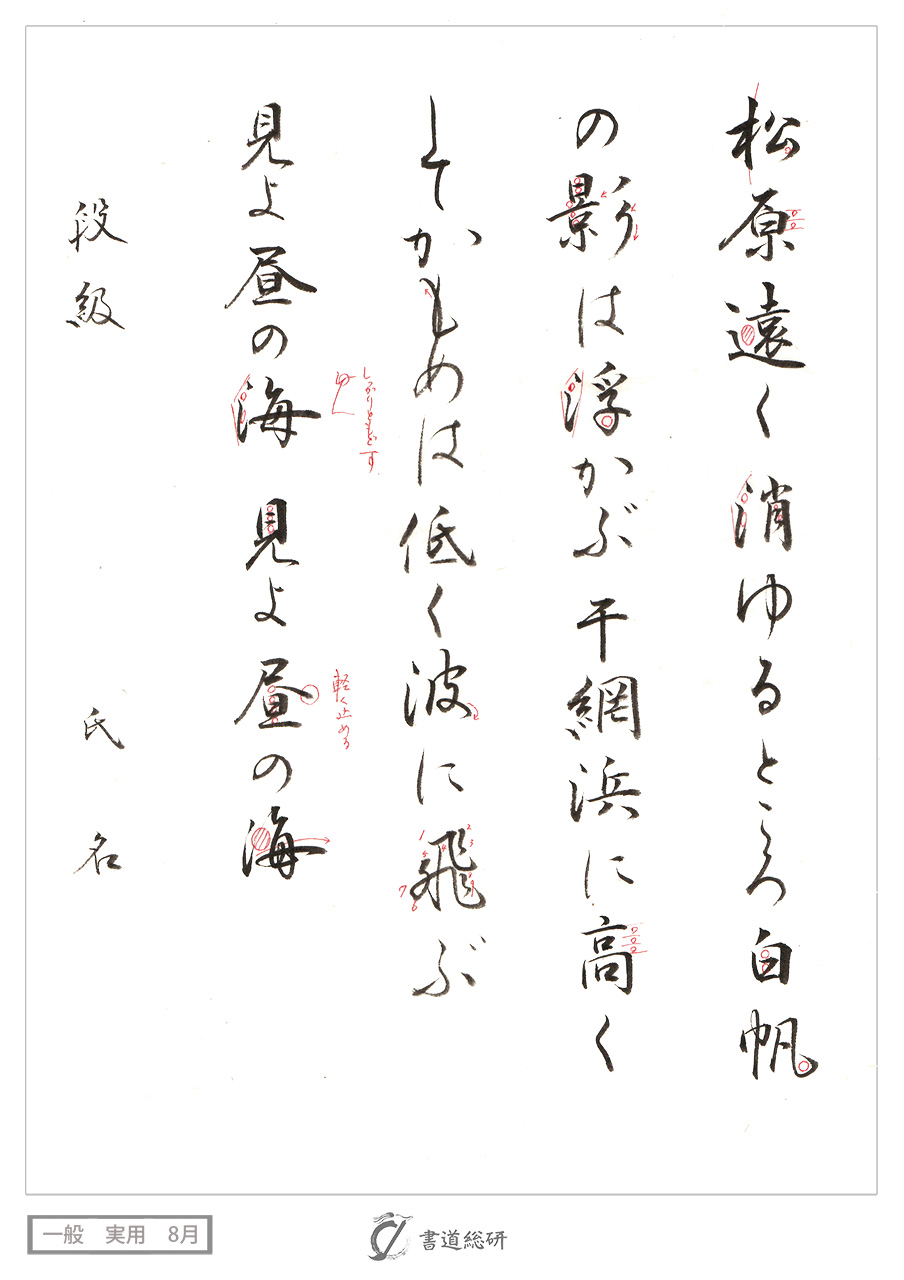 松原遠く消ゆるところ白帆
の影は浮かぶ干網浜に高く
してかもめは低く波に飛ぶ
見よ昼の海 見よ昼の海
しっかりともどす
軽く止める
段級 氏名
一般 実用 8月
書道総研